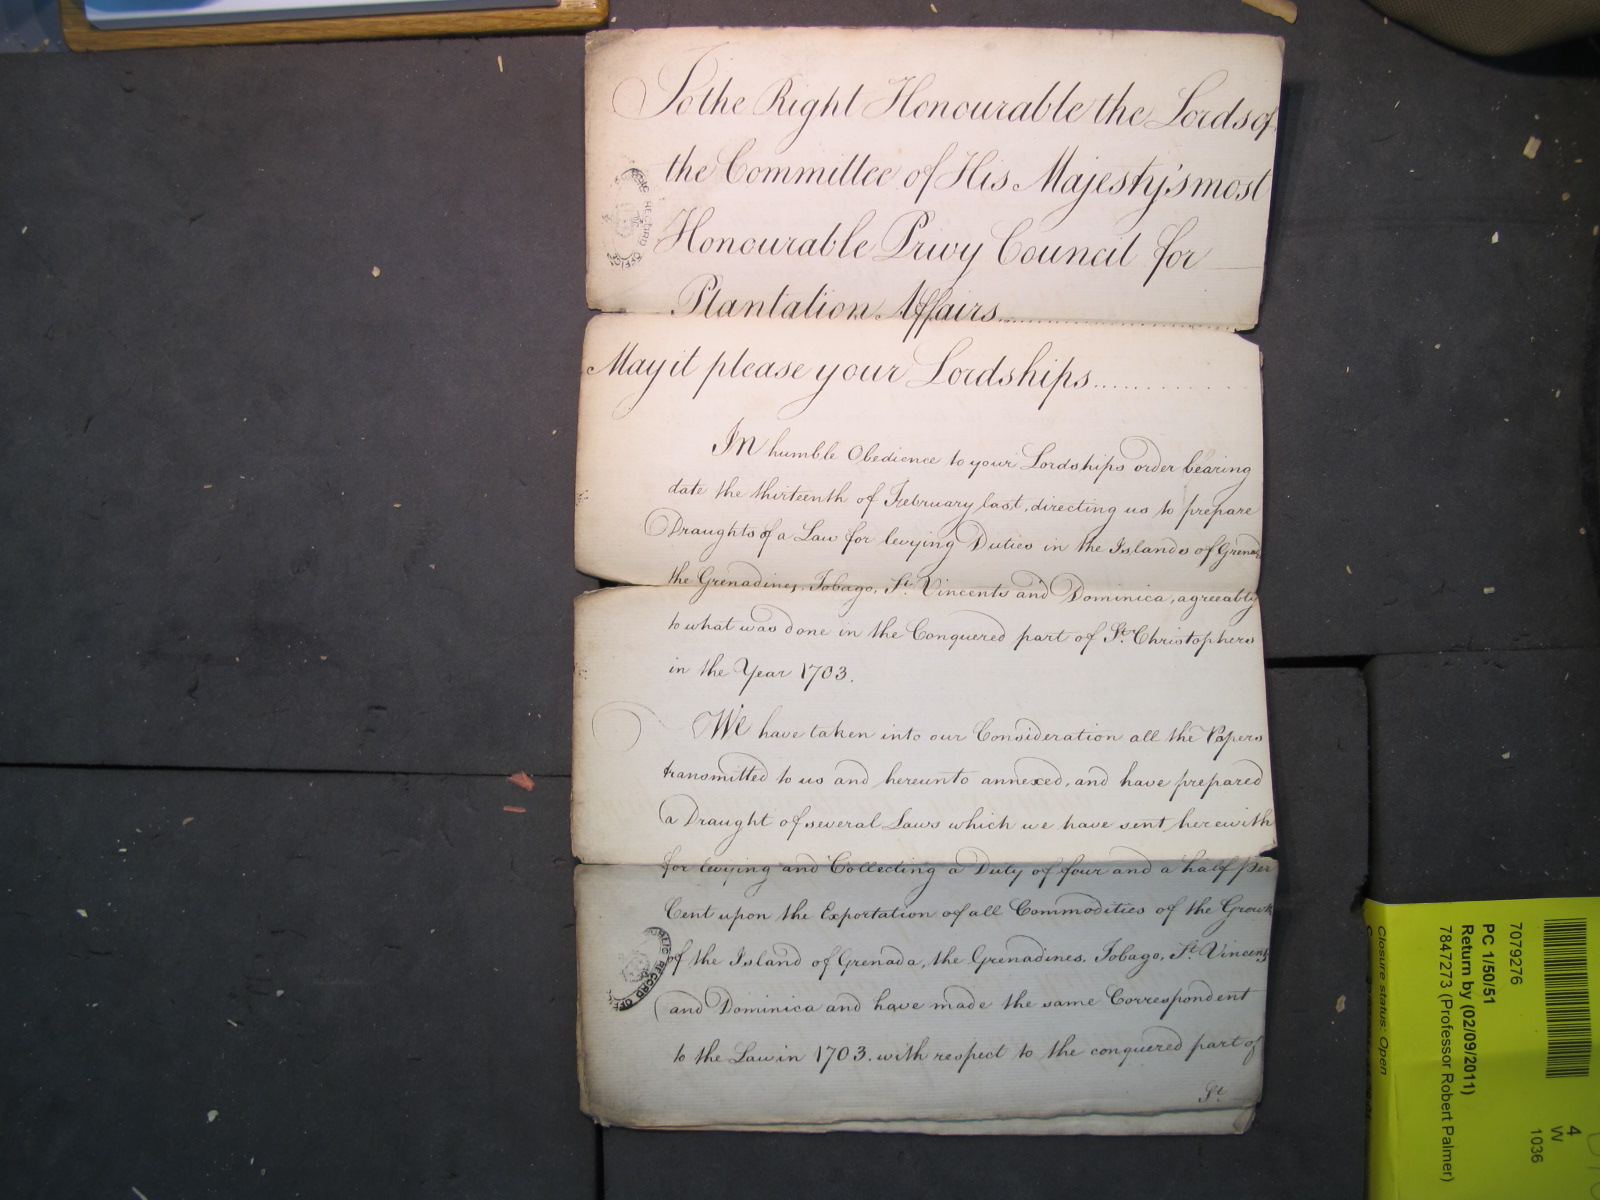 To the Right Honourable the Lords of
the Committee of His Majesty's most
Honourable Privy Council for
Plantation Affairs
May it please your Lordships
In humble Obedience to your Lordships order bearing
date the thirteenth of February last, directing us to prepare
Draughts of a Law for levying Duties in the Islands of Grena
the Grenadines, Tobago, St. Vincents and Dominica, agreeably
to what was done in the Conquered part of St. Christophers
in the Year 1703.
We have taken into our Consideration all the Papers
transmitted to us and hereunto annexed, and have prepared
a Draught of several Laws which we have sent herewith
for levying and Collecting a Duty of four and a half per
Cent upon the Exportation of all Commodities of the Growth
of the Island of Grenada, the Grenadines, Tobago, St. Vincents
and Dominica and have made the same Correspondent
to the Law in 1703. with respect to the conquered part of
St.
PUBLIC RECORD OFFICE
PUBLIC RECORD OFFI
7079276
PC 1/50/51
Return by (02/09/2011)
7847273 (Professor Robert Palmer)
Closure status: Open
4
W
1036